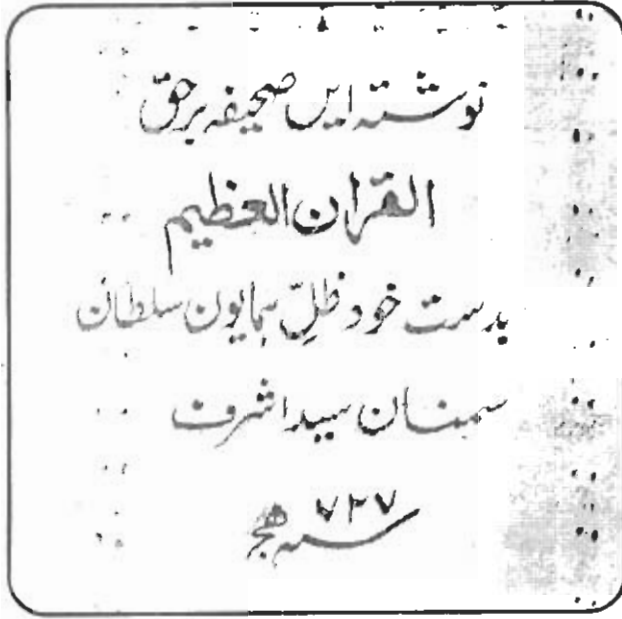 نوشتہ ایں صحیفہ برحق
القرآن العظیم
بدست خود ظلِّ ہمایون سلطان
سمنان سید اشرف
۷۲۷ سنہ ھج